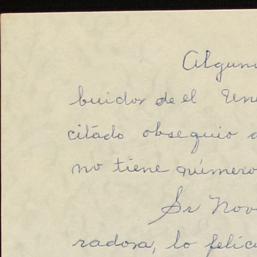 Algun
buidor de el Un
citado obsequio
no tiene número
Sr Nov
radora, lo felic